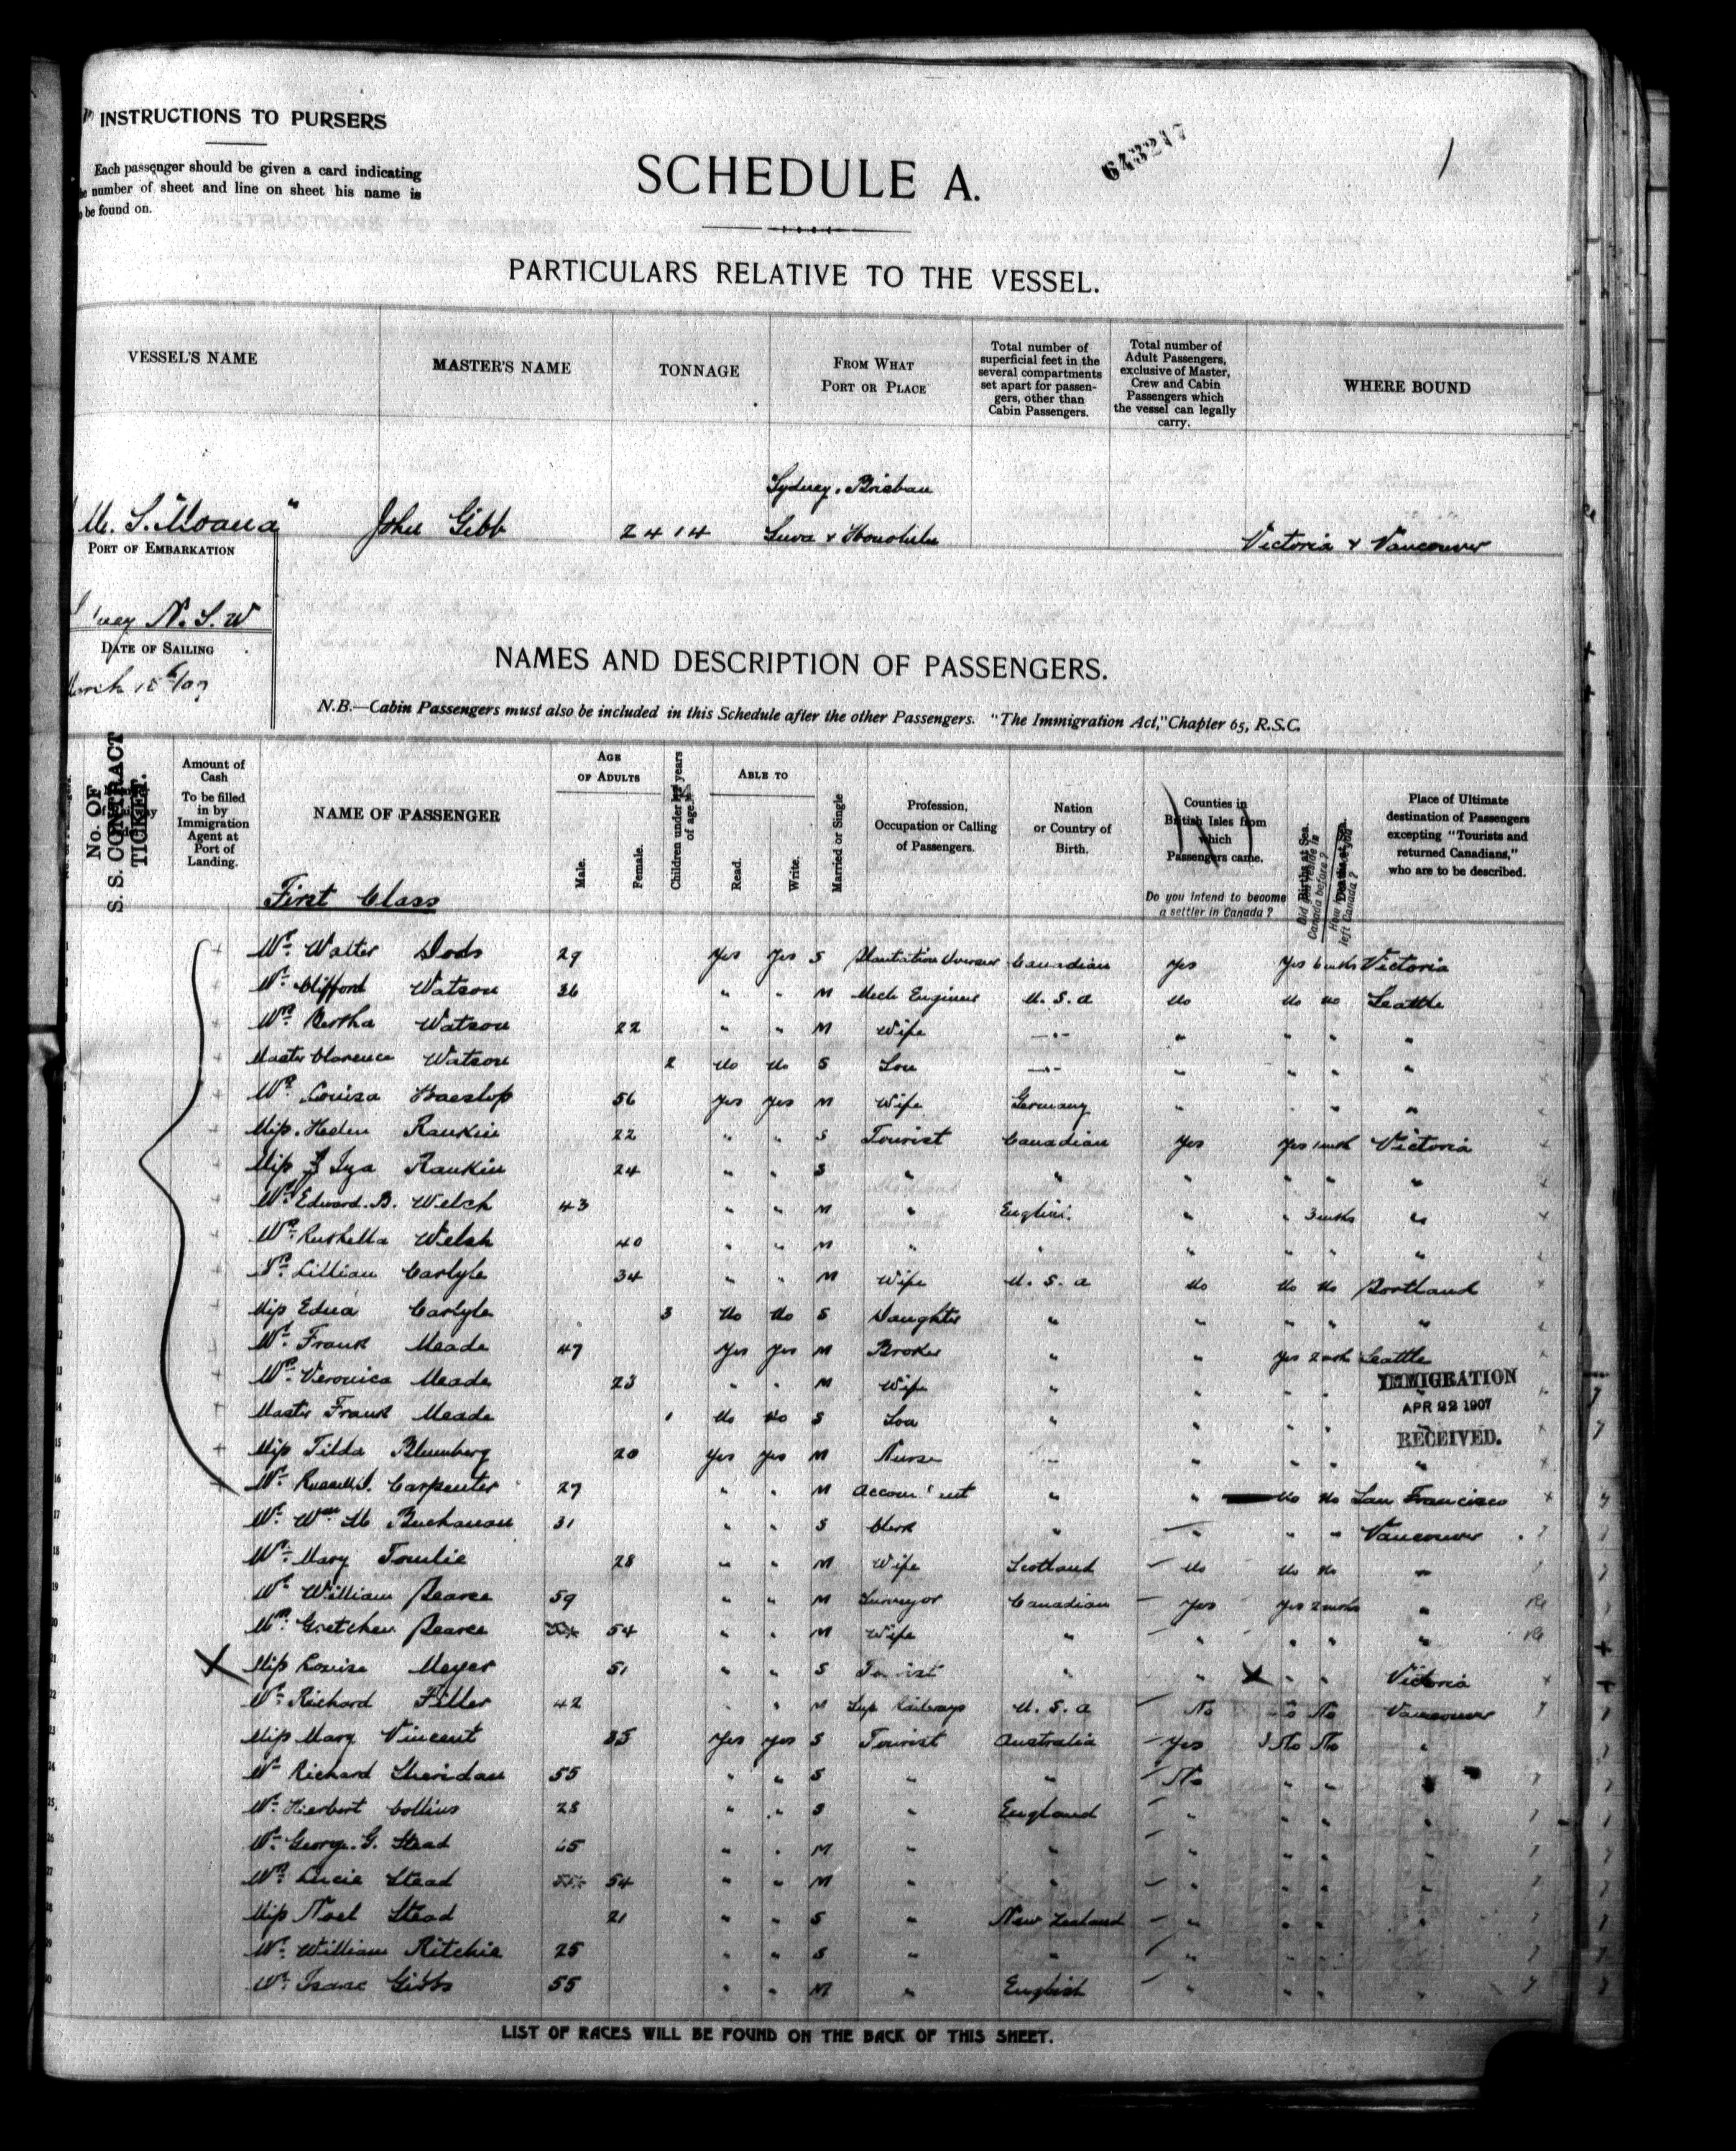 INSTRUCTIONS TO PURSERS
Each passenger should be given a card indicating
number of sheet and line on sheet his name is
be found on.
SCHEDULE A.
643217
1
PARTICULARS RELATIVE TO THE VESSEL.
VESSEL'S NAME
MASTER'S NAME
TONNAGE
FROM WHAT PORT OR PLACE
Total number of superficial feet in the several compartments set apart for passengers, other than Cabin Passengers.
Total number of Adult Passengers, exclusive of Master, Crew and Cabin Passengers which the vessel can legally carry.
WHERE BOUND
M. S. "Moana" John Gibb 2414 Sydney, Brisban Suva & Honolulu Victoria & Vancouver
PORT OF EMBARKATION
N. S. W
DATE OF SAILING
March 18th/07
NAMES AND DESCRIPTION OF PASSENGERS.
N.B.—Cabin Passengers must also be included in this Schedule after the other Passengers. "The Immigration Act," Chapter 65, R.S.C.
No. OF S. S. CONTRACT TICKET.
Amount of Cash To be filled in by Immigration Agent at Port of Landing.
NAME OF PASSENGER
AGE OF ADULTS
Male.
Female.
Children under years of age.
ABLE TO
Read.
Write.
Married or Single
Profession, Occupation or Calling of Passengers.
Nation or Country of Birth.
Counties in British Isles from which Passengers came.
Do you intend to become a settler in Canada?
Births at Sea.
Canada before?
left Canada?
Place of Ultimate destination of Passengers excepting "Tourists and returned Canadians," who are to be described.
First Class
1 Mr. Walter Dods 29 Yes Yes S Plantation Overseer Canadian Yes Yes 6 mths Victoria
2 Mr. Clifford Watson 36 " " M Mech Engineer U. S. A No No No Seattle
Mrs. Bertha Watson 22 " " M Wife —"— " " " "
Master Clarence Watson 2 No No S Son —"— " " " "
5 Mrs. Louisa 56 Yes Yes M Wife Germany " " " "
6 Miss. Helen Rankin 22 " " S Tourist Canadian Yes Yes 1 mth Victoria
7 Miss Rankin 24 " " S " " " " " "
8 Mr. Edward. B. Welch 43 " " M " English. " " 3 mths "
9 Mrs. Welsh 40 " " M " " " " " "
10 Mrs. Lillian Carlyle 34 " " M Wife U. S. A No No No Portland
11 Miss Edna Carlyle 3 No No S Daughter " " " " "
12 Mr. Frank Meade 47 Yes Yes M Broker " " Yes 2 mth Seattle
13 Mrs. Veronica Meade 23 " " M Wife " " " " "
14 Master Frank Meade 1 No No S Son " " " " "
15 Miss Tilda Blumberg 20 Yes Yes M Nurse " " " " "
16 Mr. Russell. J. Carpenter 27 " " M " " No No San Francisco
17 Mr. Wm M Buchanan 31 " " S Clerk " " " " Vancouver
18 Mrs. Mary 28 " " M Wife Scotland No No No "
19 Mr. William Pearce 59 " " M Surveyor Canadian Yes Yes 2 mths " Re
Mrs. Gretchen Pearce 54 " " M Wife " " " " " Re
21 Miss Louise Meyer 51 " " S Tourist " " " " Victoria
22 Mr. Richard Filler 42 " " M Sup Railways U. S. A No No No Vancouver
Miss Mary Vincent 35 Yes Yes S Tourist Australia Yes No No "
24 Mr. Richard Sheridan 55 " " S " " No " " "
25 Mr. Herbert Collins 28 " " S " England " " " "
26 Mr. George. G. Stead 65 " " M " " " " " "
27 Mrs. Lucie Stead 54 " " M " " " " " "
28 Miss Noel Stead 21 " " S " New Zealand " " " "
29 Mr. William Ritchie 25 " " S " " " " " "
30 Mr. Isaac Gibbs 55 " " M " English " " " "
IMMIGRATION
APR 22 1907
RECEIVED.
LIST OF RACES WILL BE FOUND ON THE BACK OF THIS SHEET.